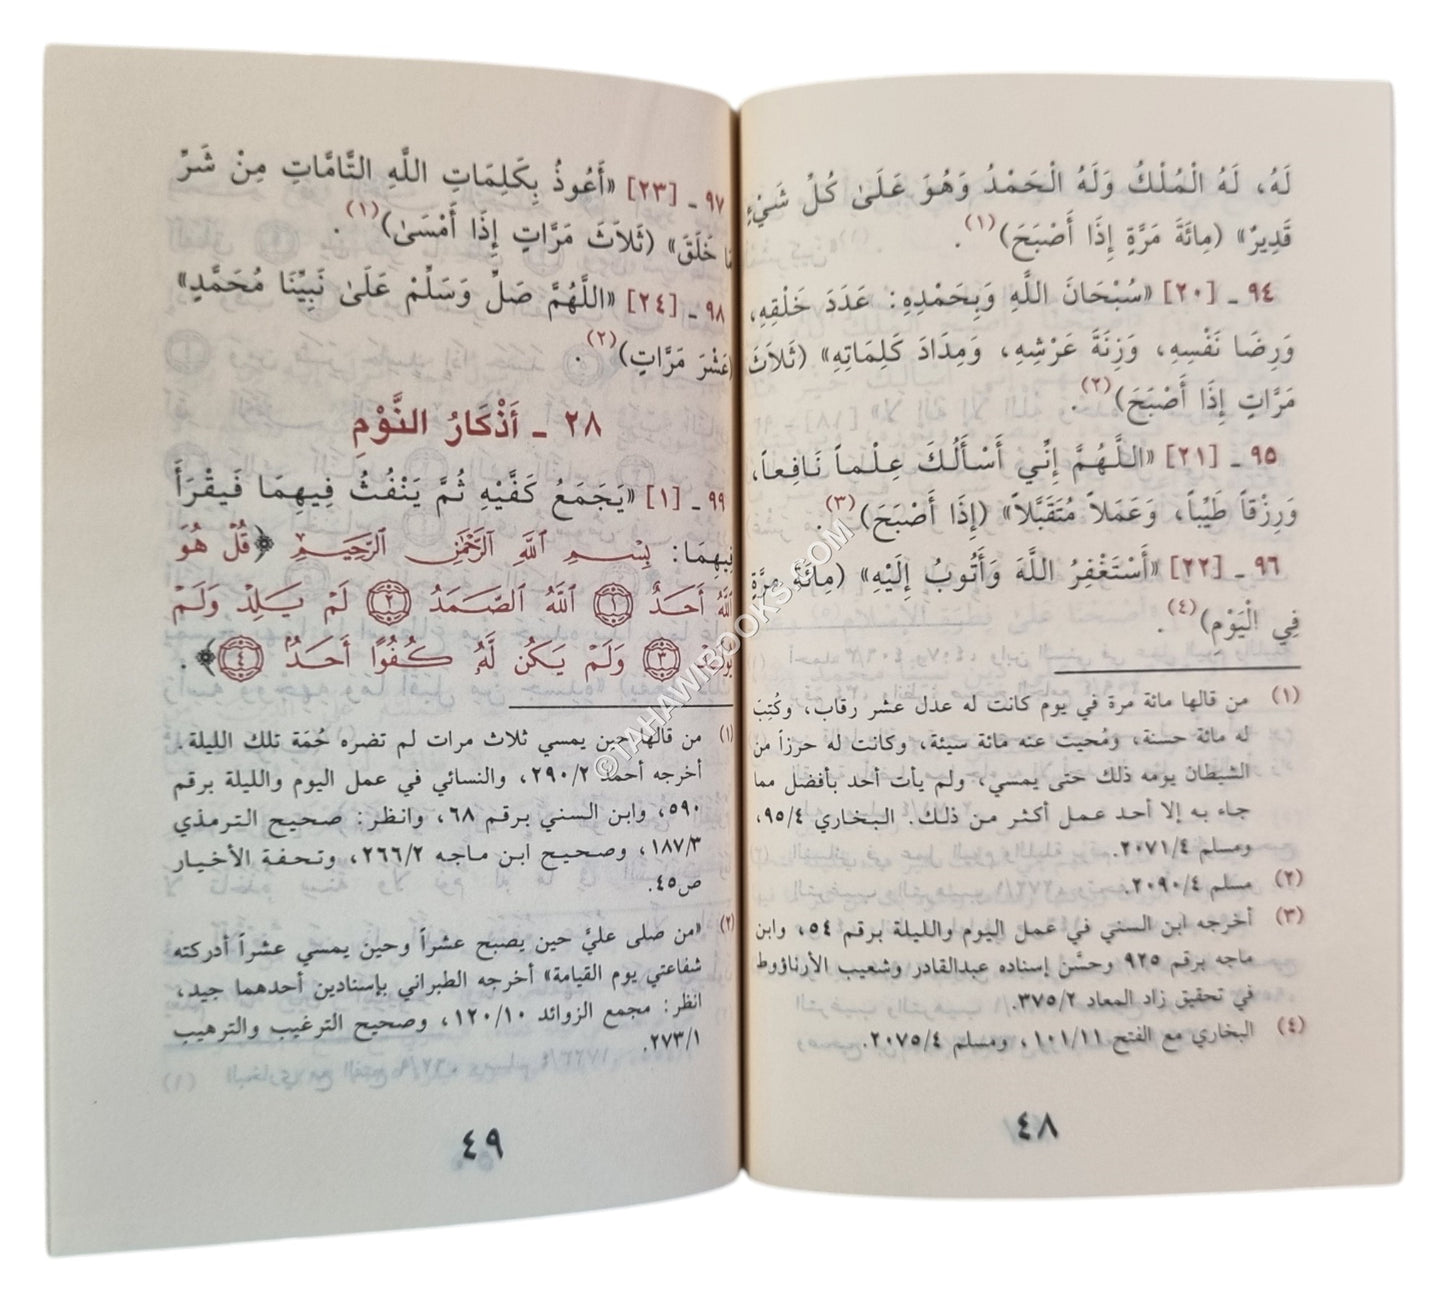 لَهُ، لَهُ الْمُلْكُ وَلَهُ الْحَمْدُ وَهُوَ عَلَىٰ كُلِّ شَيْءٍ
قَدِيرٌ» (مِائَةَ مَرَّةٍ إِذَا أَصْبَحَ)(١).
٩٤ ـ [٢٠] «سُبْحَانَ اللَّهِ وَبِحَمْدِهِ: عَدَدَ خَلْقِهِ،
وَرِضَا نَفْسِهِ، وَزِنَةَ عَرْشِهِ، وَمِدَادَ كَلِمَاتِهِ» (ثَلَاثَ
مَرَّاتٍ إِذَا أَصْبَحَ)(٢).
٩٥ ـ [٢١] «اللَّهُمَّ إِنِّي أَسْأَلُكَ عِلْماً نَافِعاً،
وَرِزْقاً طَيِّباً، وَعَمَلاً مُتَقَبَّلاً» (إِذَا أَصْبَحَ)(٣).
٩٦ ـ [٢٢] «أَسْتَغْفِرُ اللَّهَ وَأَتُوبُ إِلَيْهِ» (مِائَةَ مَرَّةٍ
فِي الْيَوْمِ)(٤).
(١) من قالها مائة مرة في يوم كانت له عدل عشر رقاب، وكُتِبَ
له مائة حسنة، ومُحيت عنه مائة سيئة، وكانت له حرزاً من
الشيطان يومه ذلك حتى يمسي، ولم يأت أحد بأفضل مما
جاء به إلا أحد عمل أكثر من ذلك. البخاري ٩٥/٤،
ومسلم ٢٠٧١/٤.
(٢) مسلم ٢٠٩٠/٤.
(٣) أخرجه ابن السني في عمل اليوم والليلة برقم ٥٤، وابن
ماجه برقم ٩٢٥ وحسَّن إسناده عبدالقادر وشعيب الأرناؤوط
في تحقيق زاد المعاد ٣٧٥/٢.
(٤) البخاري مع الفتح ١٠١/١١، ومسلم ٢٠٧٥/٤.
٤٨
٩٧ ـ [٢٣] «أَعُوذُ بِكَلِمَاتِ اللَّهِ التَّامَّاتِ مِنْ شَرِّ
مَا خَلَقَ» (ثَلَاثَ مَرَّاتٍ إِذَا أَمْسَىٰ)(١).
٩٨ ـ [٢٤] «اللَّهُمَّ صَلِّ وَسَلِّمْ عَلَىٰ نَبِيِّنَا مُحَمَّدٍ»
(عَشْرَ مَرَّاتٍ)(٢).
٢٨ ـ أَذْكَارُ النَّوْمِ
٩٩ ـ [١] «يَجْمَعُ كَفَّيْهِ ثُمَّ يَنْفُثُ فِيهِمَا فَيقْرَأُ
فِيهِمَا: بِسْمِ ٱللَّهِ ٱلرَّحْمَٰنِ ٱلرَّحِيمِ ﴿قُلْ هُوَ
ٱللَّهُ أَحَدٌ ١ ٱللَّهُ ٱلصَّمَدُ ٢ لَمْ يَلِدْ وَلَمْ
يُولَدْ ٣ وَلَمْ يَكُن لَّهُۥ كُفُوًا أَحَدٌ ٤﴾.
(١) من قالها حين يمسي ثلاث مرات لم تضره حُمَة تلك الليلة.
أخرجه أحمد ٢٩٠/٢، والنسائي في عمل اليوم والليلة برقم
٥٩٠، وابن السني برقم ٦٨، وانظر: صحيح الترمذي
١٨٧/٣، وصحيح ابن ماجه ٢٦٦/٢، وتحفة الأخيار
ص٤٥.
(٢) «من صلى عليَّ حين يصبح عشراً وحين يمسي عشراً أدركته
شفاعتي يوم القيامة» أخرجه الطبراني بإسنادين أحدهما جيد،
انظر: مجمع الزوائد ١٢٠/١٠، وصحيح الترغيب والترهيب
٢٧٣/١.
٤٩
©TAHAWIBOOKS.COM